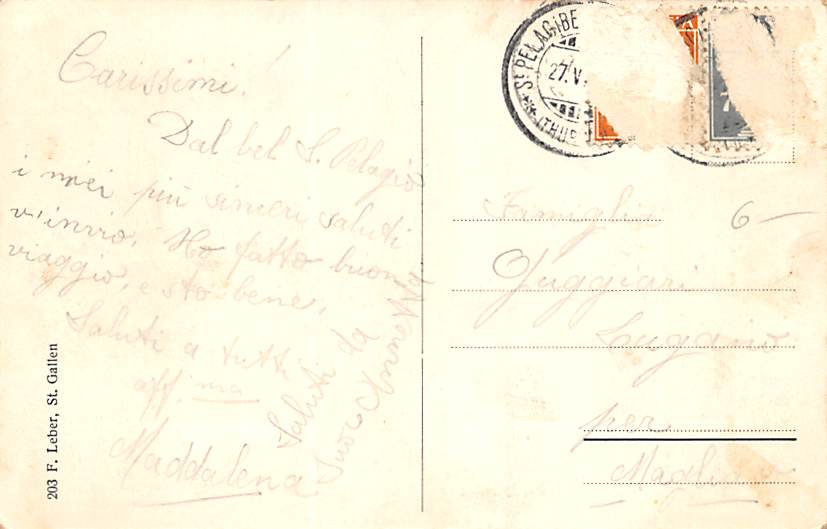 Carissimi!
Dal bel S. Pelagio
i miei più sinceri saluti
v'invio. Ho fatto buon
viaggio, e sto bene.
Saluti a tutti
aff.ma
Maddalena
Saluti da
Suor Annetta
203 F. Leber, St. Gallen
ST PELAGIBE
27.V.
(THUR
7
Famiglia
6 —
Fuggiari
Lugano
per